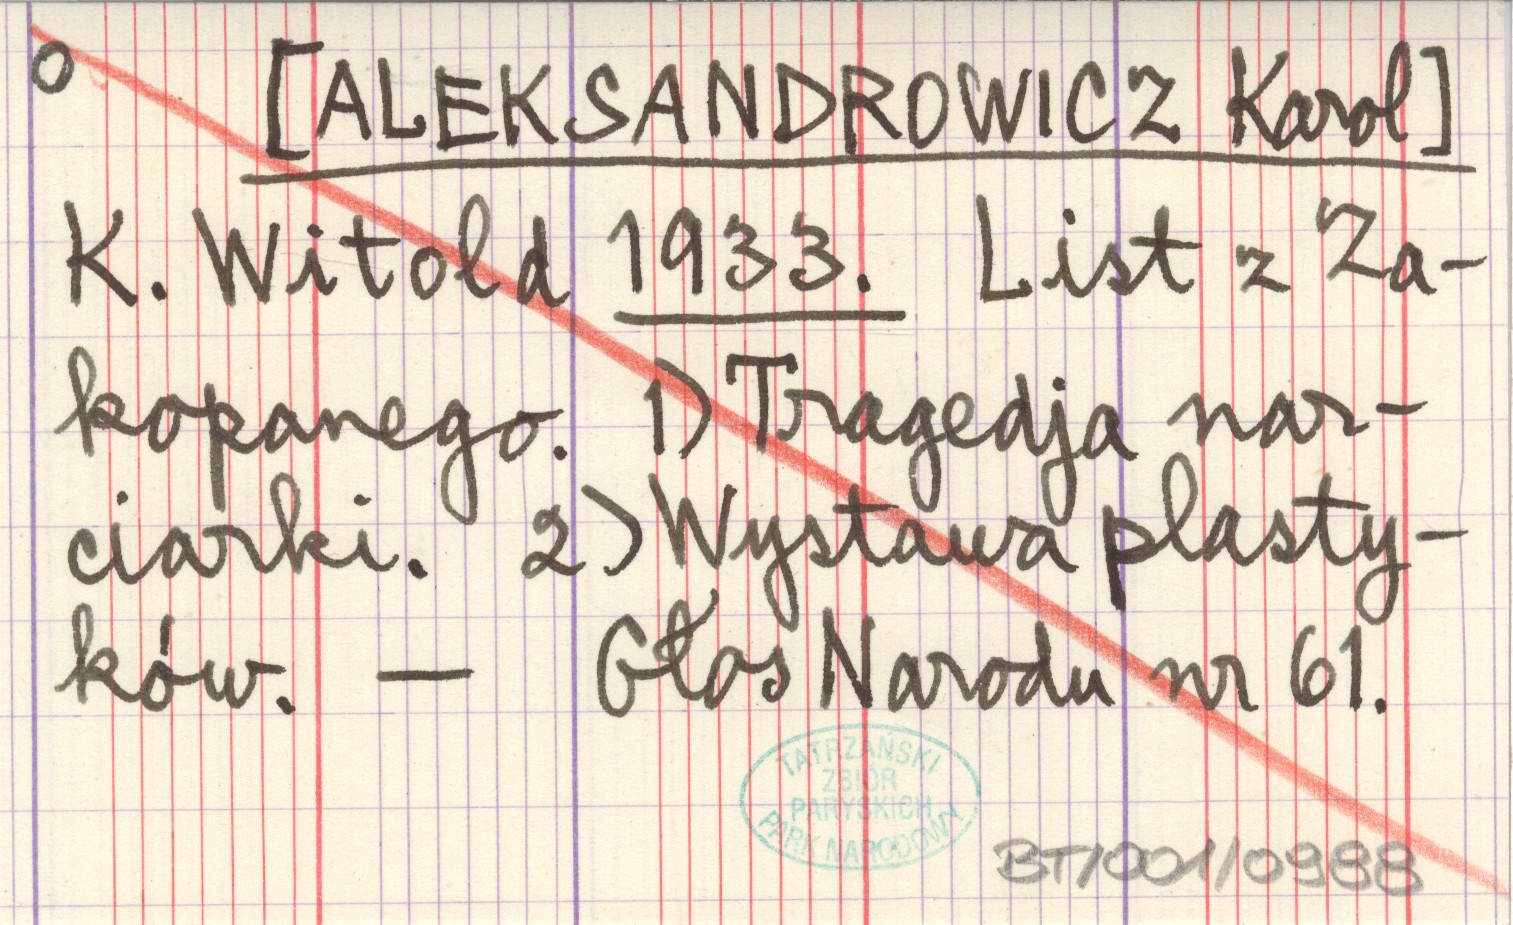 o [ALEKSANDROWICZ Karol]
K. Witold 1933. List z Za-
kopanego. 1) Tragedja nar-
ciarki. 2) Wystawa plasty-
ków. — Głos Narodu nr 61.
TATRZAŃSKI
ZBIÓR
PARYSKICH
PARK NARODOWY
BT/001/0988